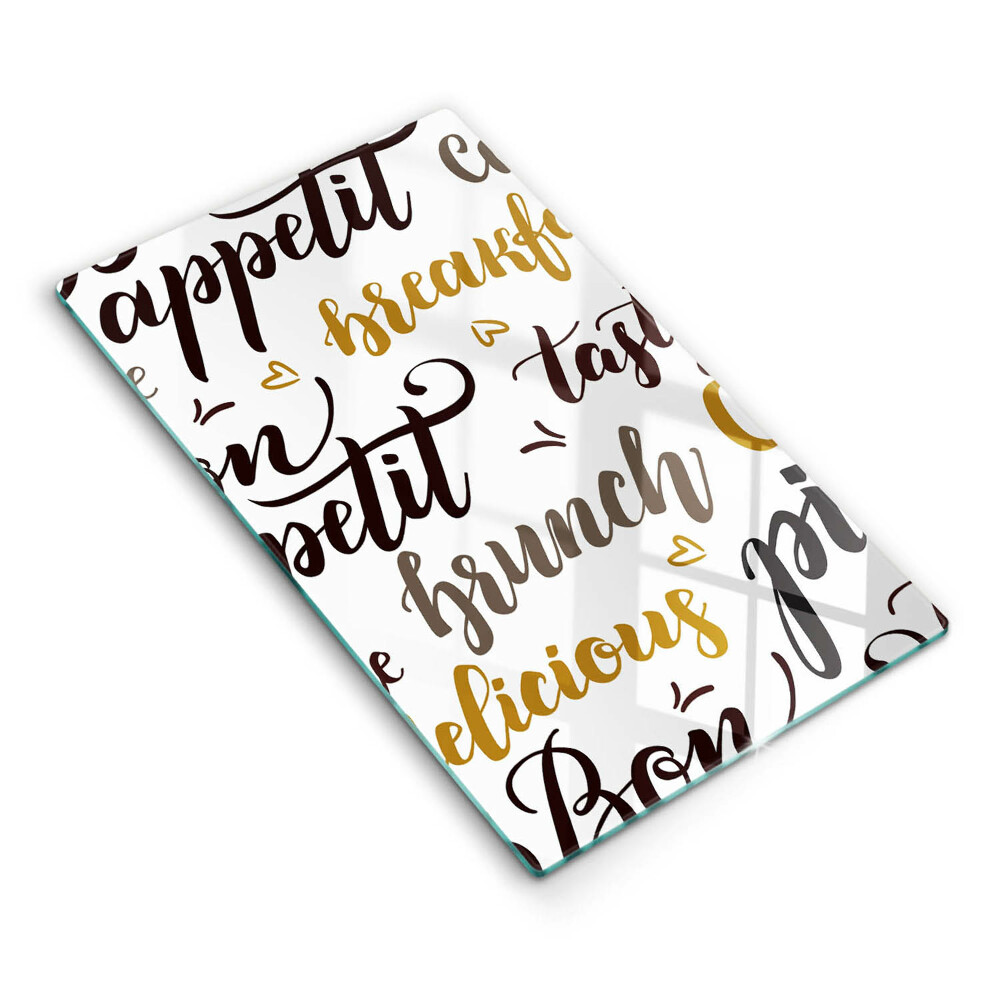 appetit
breakf
tast
on
petit
brunch
pi
elicious
Bon